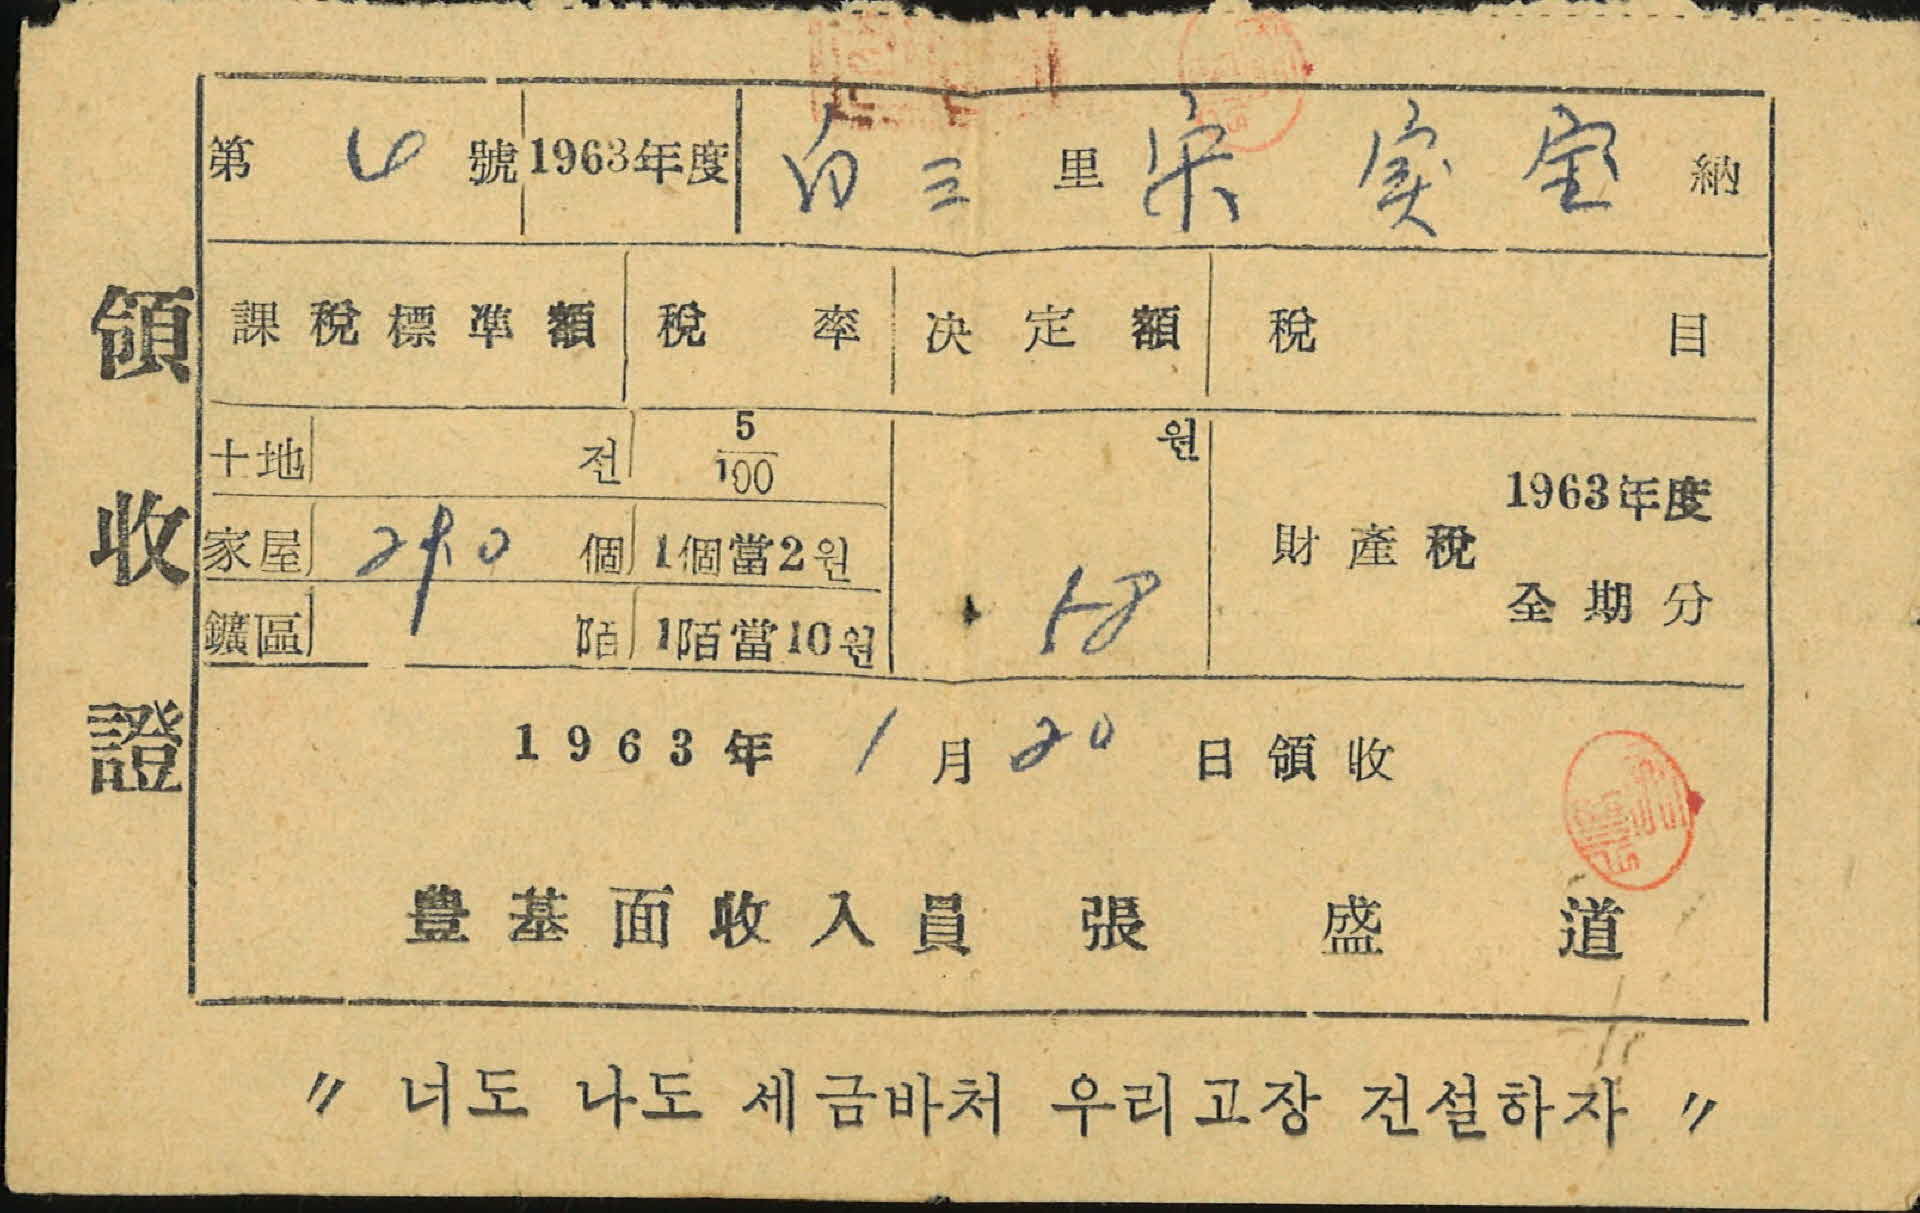 領收證
第 6 號 1963年度 白三 里 宋 寅 宝 納
課稅標準額 稅率 決定額 稅目
土地 전 5/100 원
家屋 290 個 1個當2원 58 財產稅 1963年度 全期分
鑛區 陌 1陌當10원
1963年 1月 20日領收
豊基面收入員 張盛道
〃 너도 나도 세금바처 우리고장 건설하자 〃